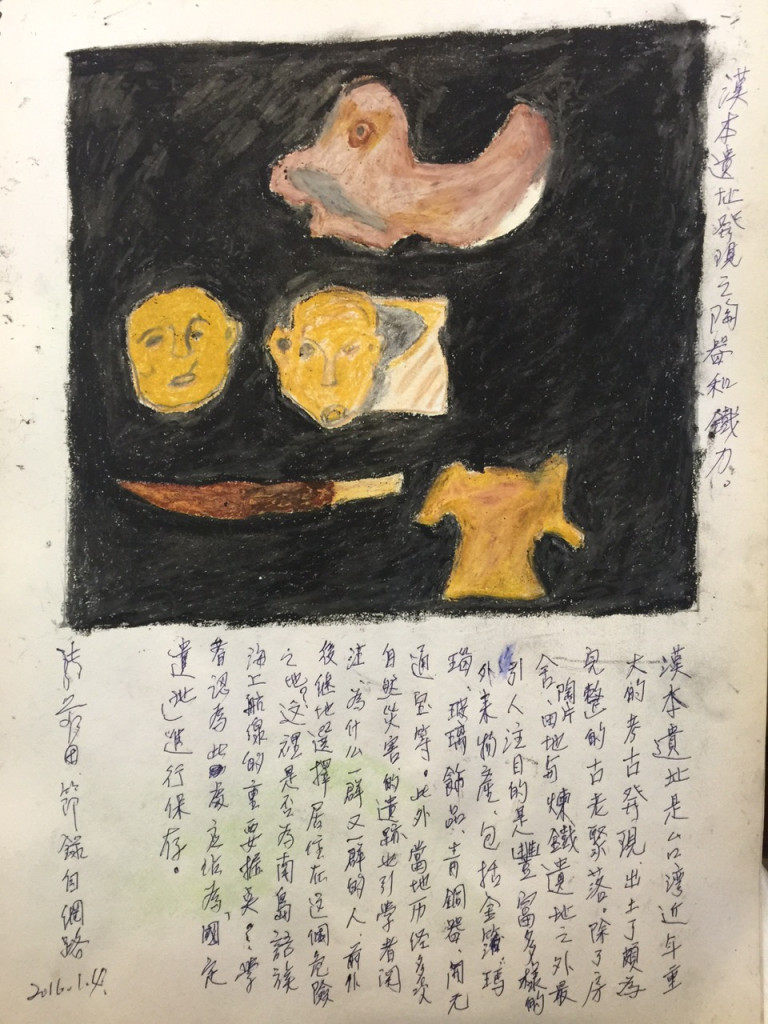 漢本遺址發現之陶器和鐵刀。
漢本遺址是台灣近年重
大的考古發現.出土了頗為
完整的古老聚落。除了房
舍、陶片、田地与煉鐵遺地之外最
引人注目的是豐富多樣的
外來物產、包括金箔、瑪
瑙、玻璃飾品、青銅器、開元
通宝等。此外當地历經多次
自然災害的遺跡也引學者関
注、為什么一群又一群的人、前仆
後继地選擇居住在這個危險
之地？這裡是否為南島語族
海上航線的重要據點？學
者認為此處应作為國定
遺址進行保存。
節錄自網路
2016.1.4.